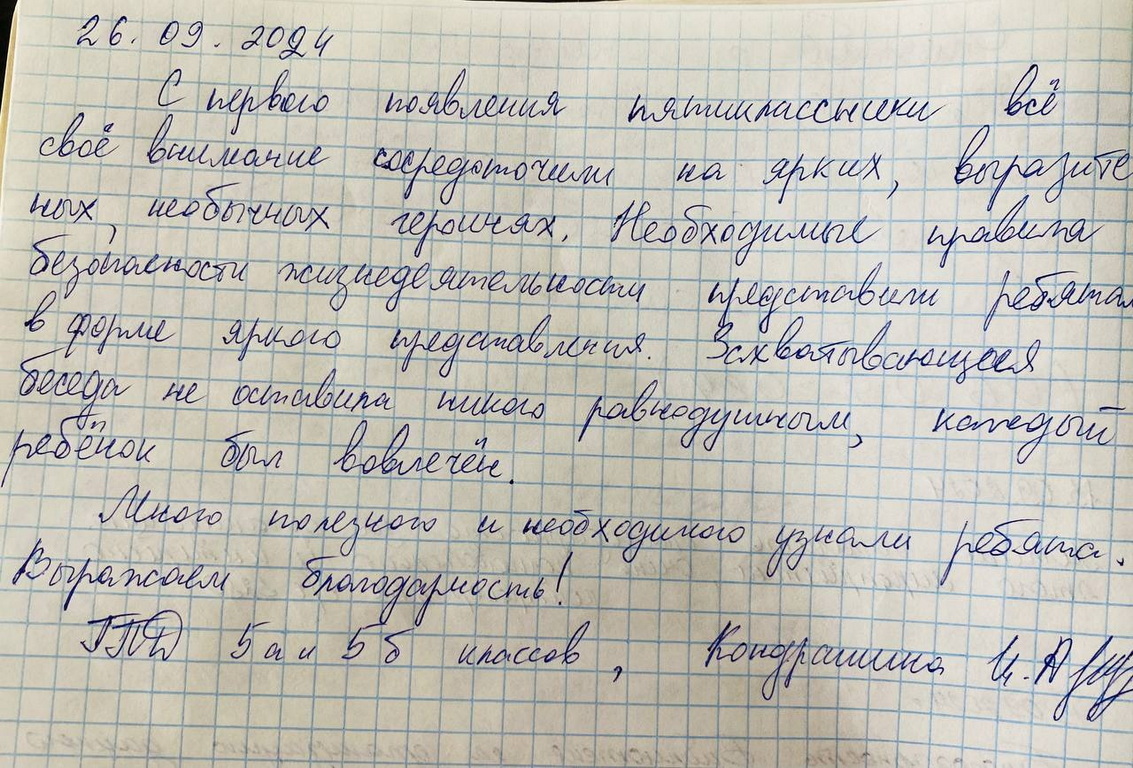 26.09.2024
С первого появления пятиклассники всё
своё внимание сосредоточили на ярких, выразите
ных, необычных героинях. Необходимые правила
безопасности жизнедеятельности представили ребятам
в форме яркого представления. Захватывающая
беседа не оставила никого равнодушным, каждый
ребёнок был вовлечён.
Много полезного и необходимого узнали ребята.
Выражаем благодарность!
ГПД 5а и 5б классов, Кондрашина И.А